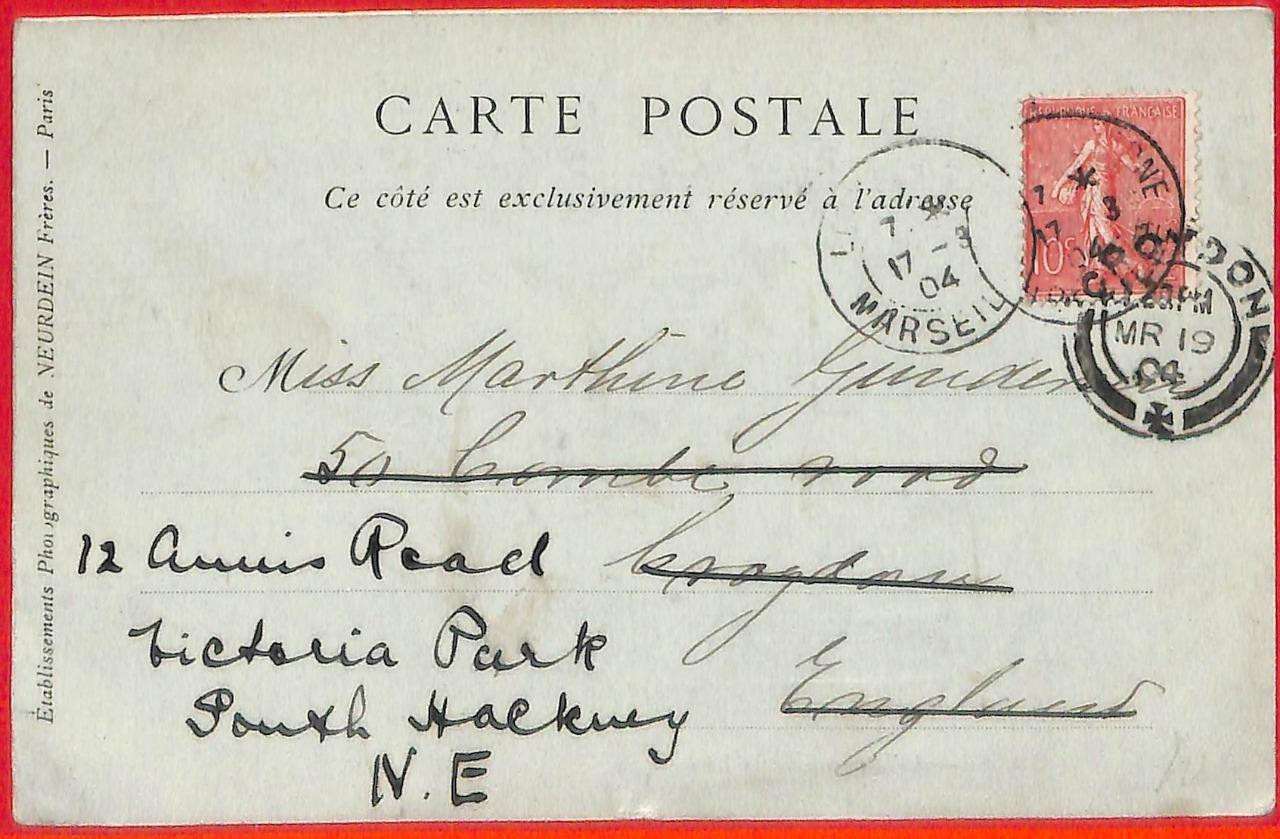 CARTE POSTALE
Ce côté est exclusivement réservé à l'adresse
Etablissements Photographiques de NEURDEIN Frères. — Paris
REPUBLIQUE FRANÇAISE
10c
7 *
17 - 3
04
MARSEIL
7 *
17 3
04
GNE
CROYDON
PM
MR 19
04
Miss Marthine
50 Combe road
Croydon
England
12 Annis Road
Victoria Park
South Hackney
N.E